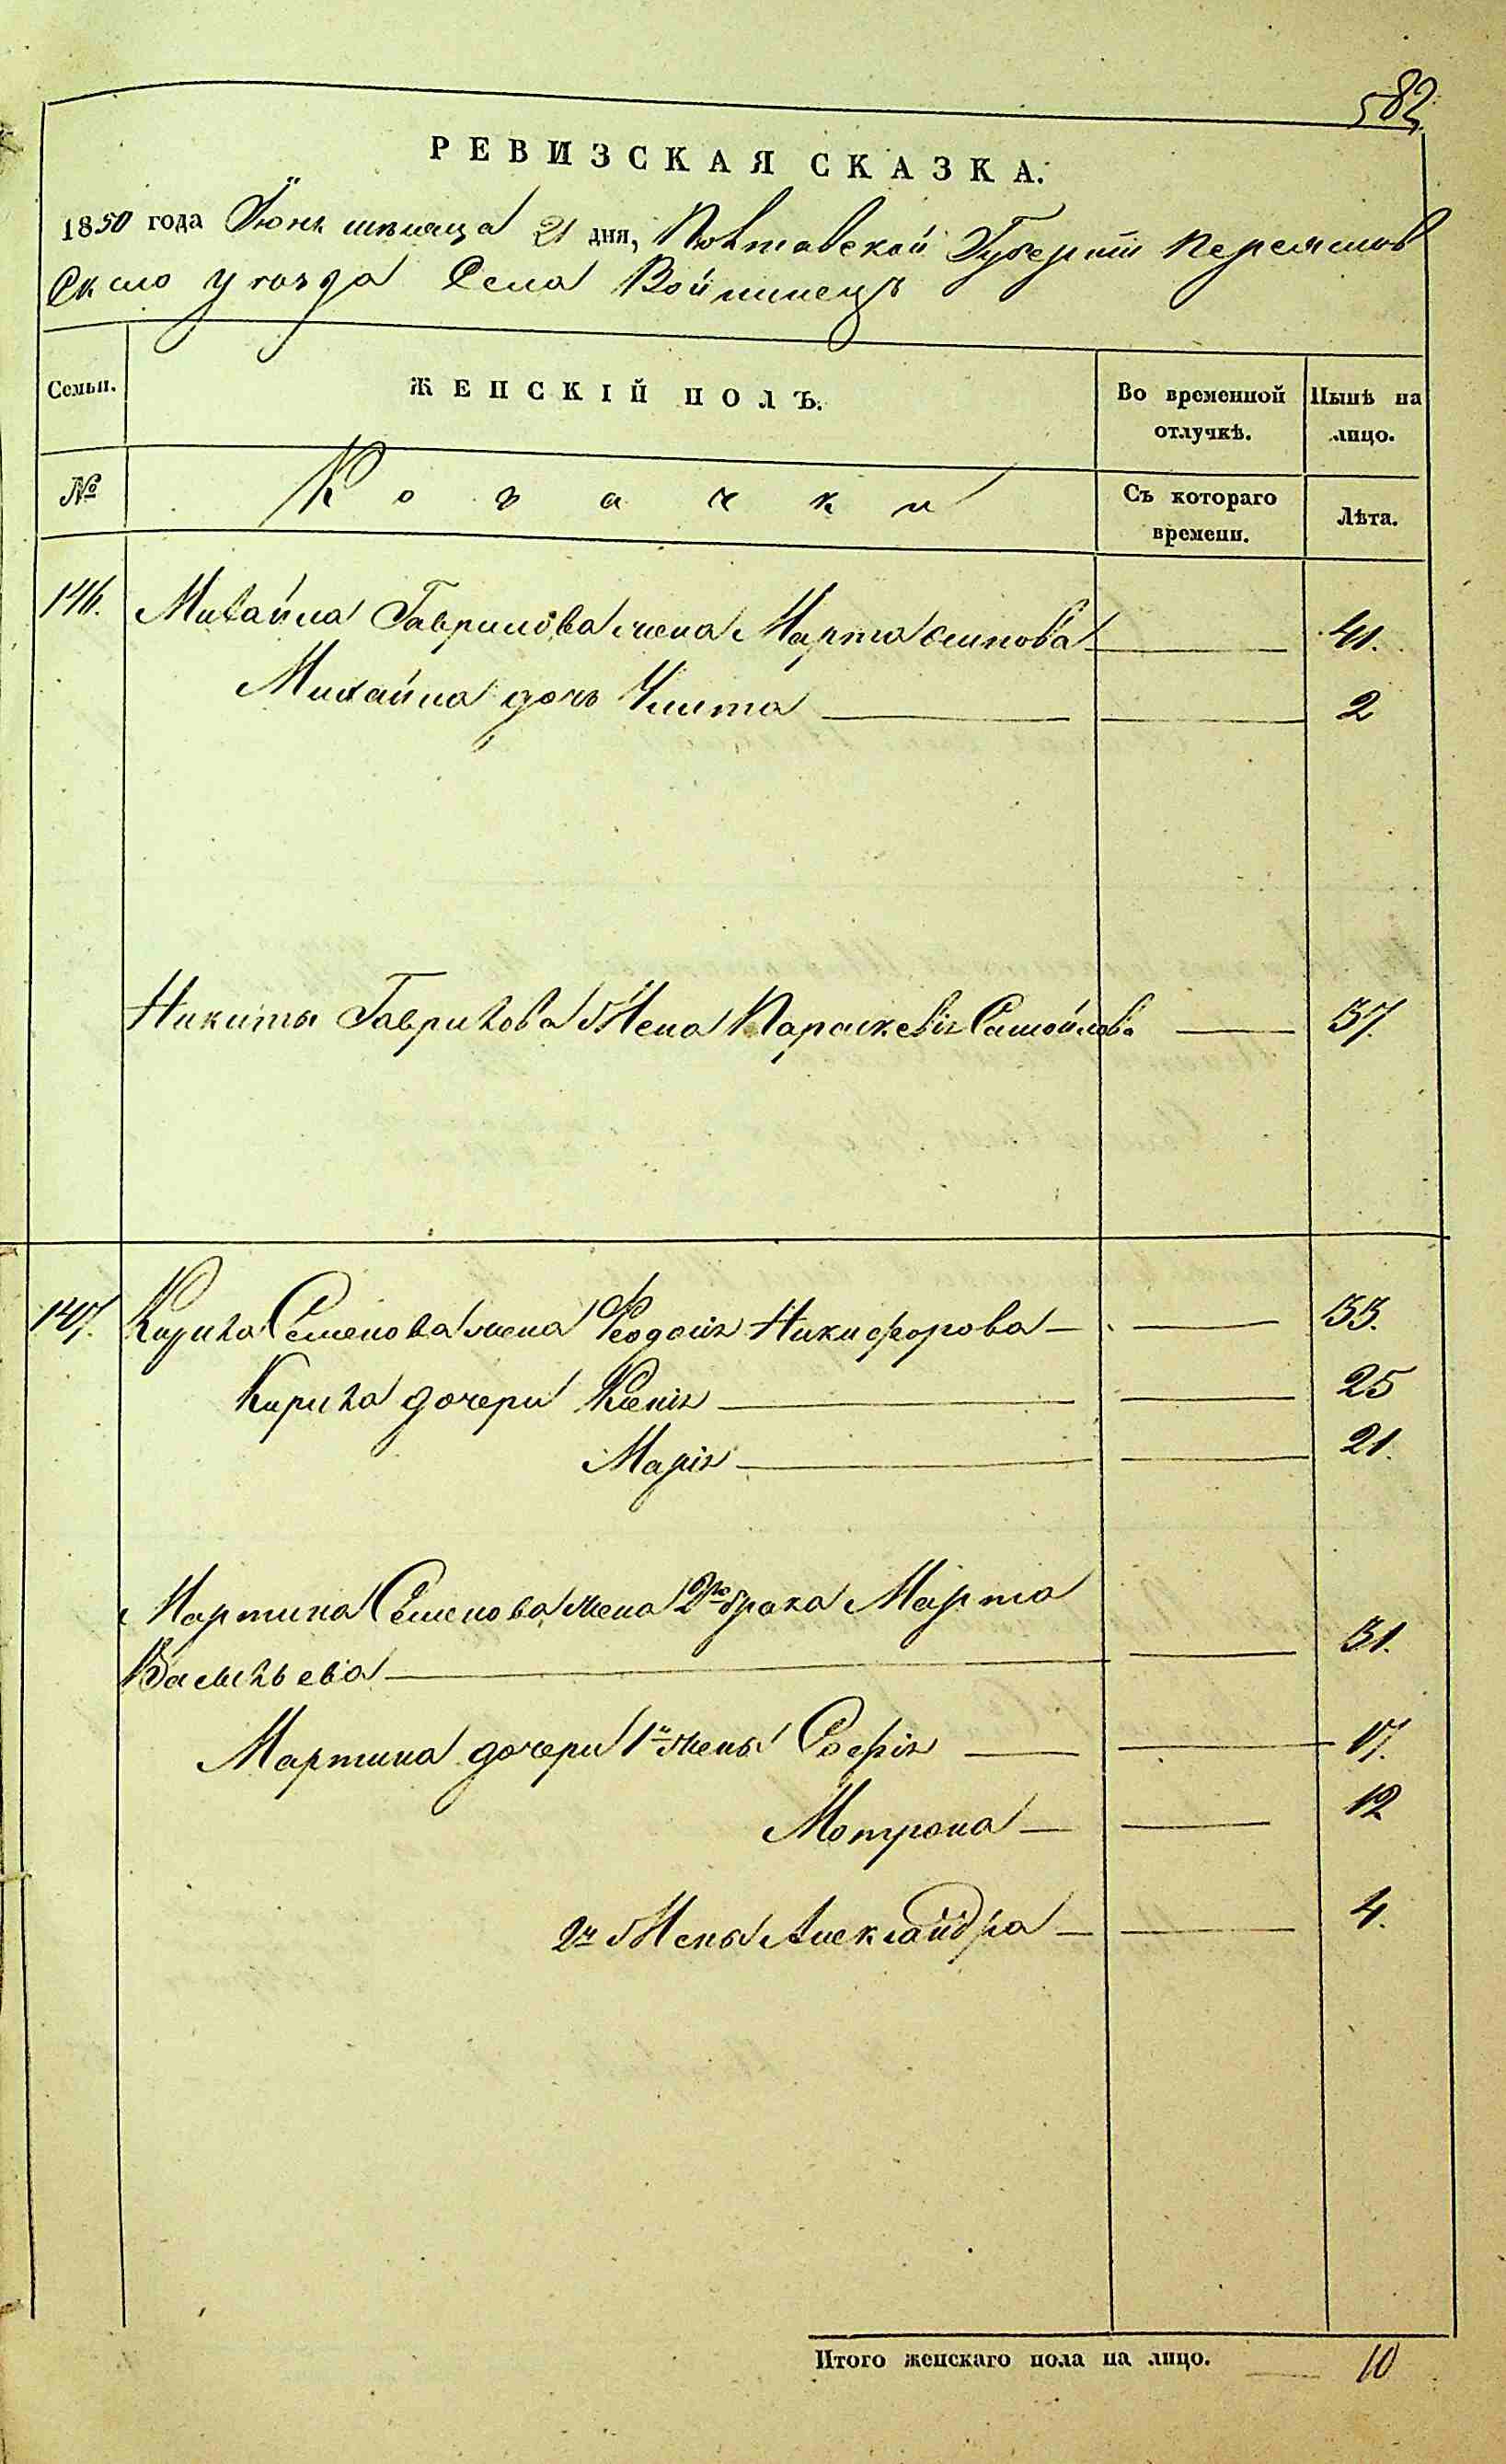 582
РЕВИЗСКАЯ СКАЗКА.
1850 года Июнь мѣсяца 21 дня, Полтавской Губерніи Переяслов
скаго уезда Села Войтинецъ
Семьи. ЖЕНСКІЙ ПОЛЪ. Во временной отлучкѣ. Нынѣ на лицо.
№ Козачки Съ котораго времени. Лѣта.
146. Михайла Гаврилова жена Марта Осипова 41.
Михайла дочь Улита 2
Никиты Гаврилова Жена Параскевія Самойлова 37.
147. Кирила Семенова жена Феодосія Никифорова 53.
Кирила дочери Ксенія 25
Марія 21.
Мартина Семенова жена 2го брака Марта
Васильева 31.
Мартина дочери 1й жены Софія 17.
Мотрона 12
2й Жены Александра 4.
Итого женскаго пола на лицо. 10